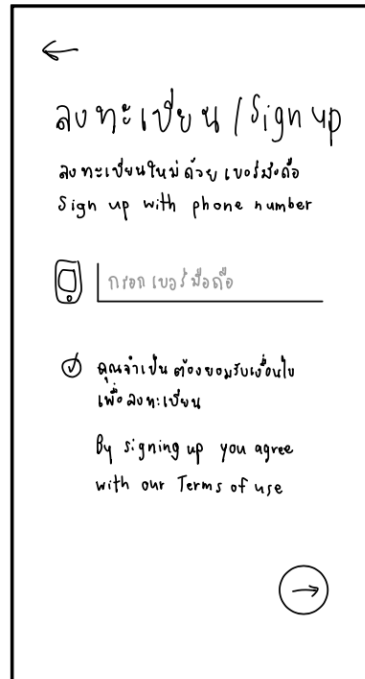 ลงทะเบียน / Sign up
ลงทะเบียนใหม่ด้วย เบอร์มือถือ
Sign up with phone number
กรอก เบอร์ มือถือ
คุณจำเป็น ต้องยอมรับเงื่อนไข
เพื่อ ลงทะเบียน
By signing up you agree
with our Terms of use